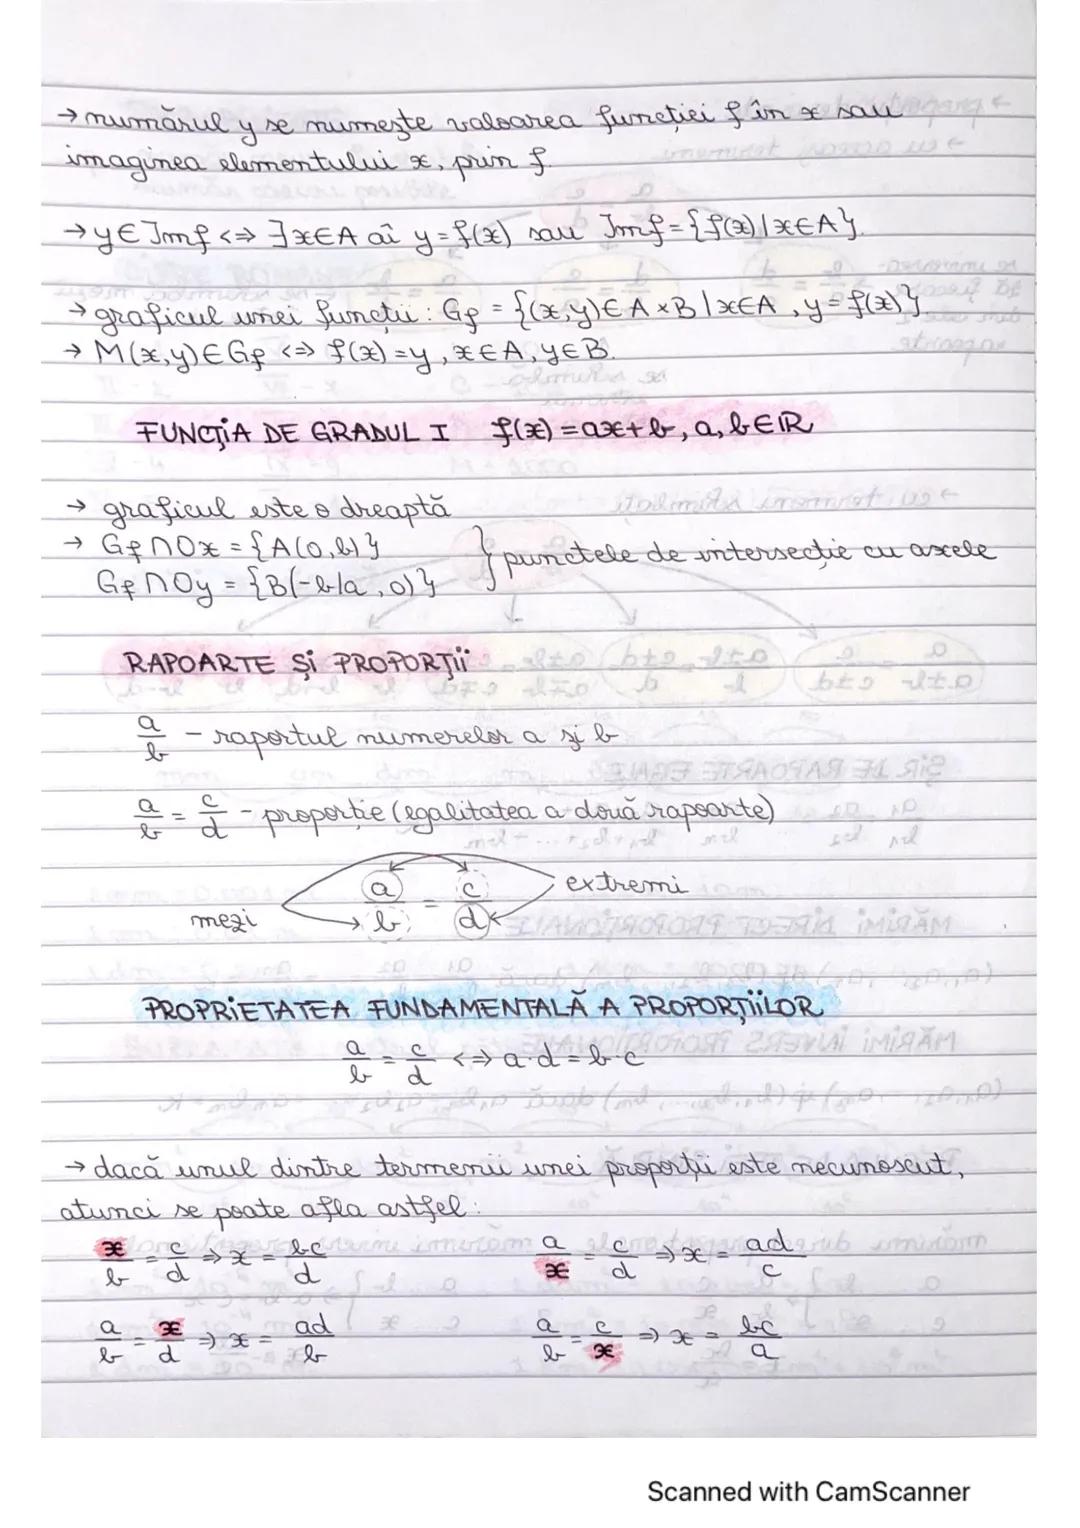 → numărul y se numește valoarea funcției f în x sau
imaginea elementului x, prin f.
→ y ∈ Imf <=> ∃ x∈A aî y = f(x) sau Imf = {f(x) | x∈A}.
→ graficul unei funcții: Gf = {(x,y) ∈ A×B | x∈A, y = f(x)}
→ M(x,y) ∈ Gf <=> f(x) = y, x∈A, y∈B.
FUNCȚIA DE GRADUL I f(x) = ax + b, a, b ∈ ℝ
→ graficul este o dreaptă
→ Gf ∩ Ox = {A(0,b)}
Gf ∩ Oy = {B(-b/a, 0)} } punctele de intersecție cu axele
RAPOARTE ȘI PROPORȚII
a/b - raportul numerelor a și b
a/b = c/d - proporție (egalitatea a două rapoarte)
mezi a/b = c/d extremi
PROPRIETATEA FUNDAMENTALĂ A PROPORȚIILOR
a/b = c/d <=> a·d = b·c
→ dacă unul dintre termenii unei proporții este necunoscut,
atunci se poate afla astfel:
x/b = c/d => x = bc/d a/x = c/d => x = ad/c
a/b = x/d => x = ad/b a/b = c/x => x = bc/a
Scanned with CamScanner